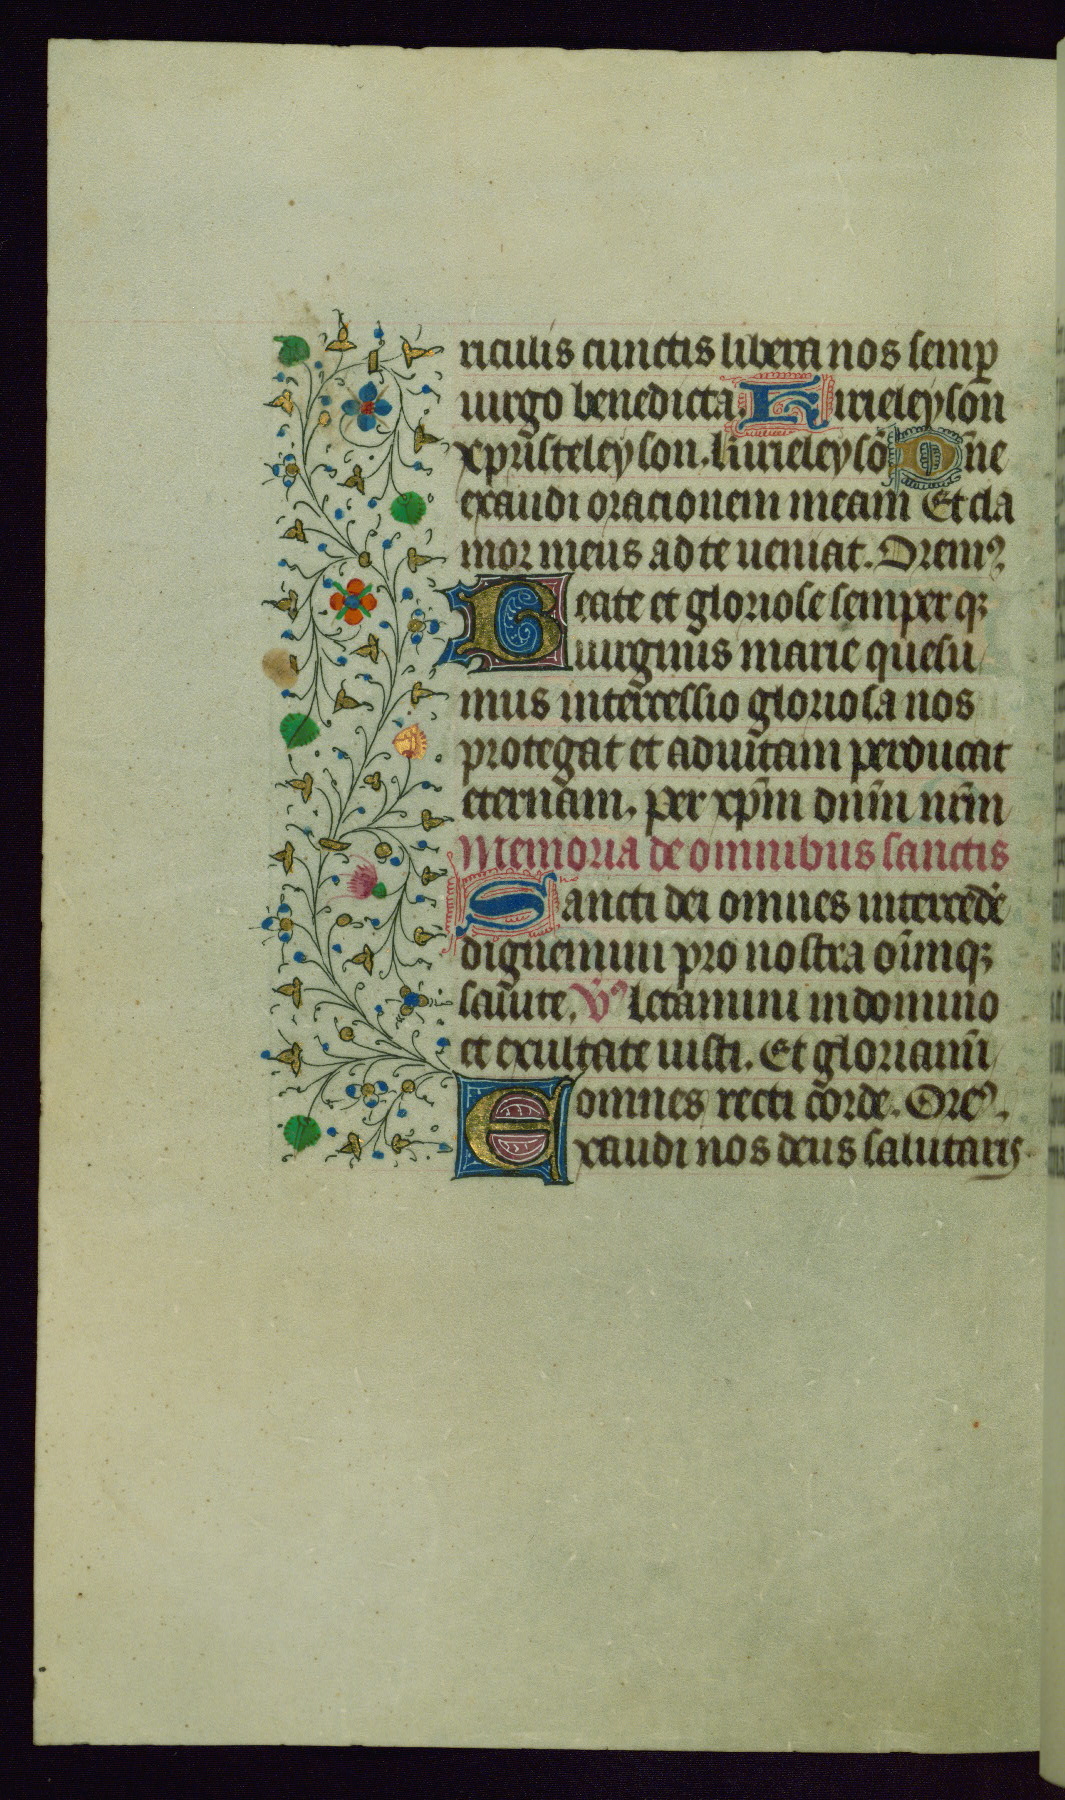 riculis cunctis libera nos semp̱
uirgo benedicta. Kirieleyson
xp̄risteleyson. kirieleysō Dn̄e
exaudi oracionem meam Et cla
mor meus ad te ueniat. Oremꝰ
Beate et gloriose semper qꝫ
uirginis marie quesu
mus intercessio gloriosa nos
protegat et ad uitam perducat
eternam. per xp̄m dn̄m nr̄m
Memoria de omnibus sanctis
Sancti dei omnes intercedē
dignemini pro nostra oīmqꝫ
salute. V̄ Letamini in domino
et exultate iusti. Et gloriamī
omnes recti corde. Oreꝰ.
Exaudi nos deus salutaris